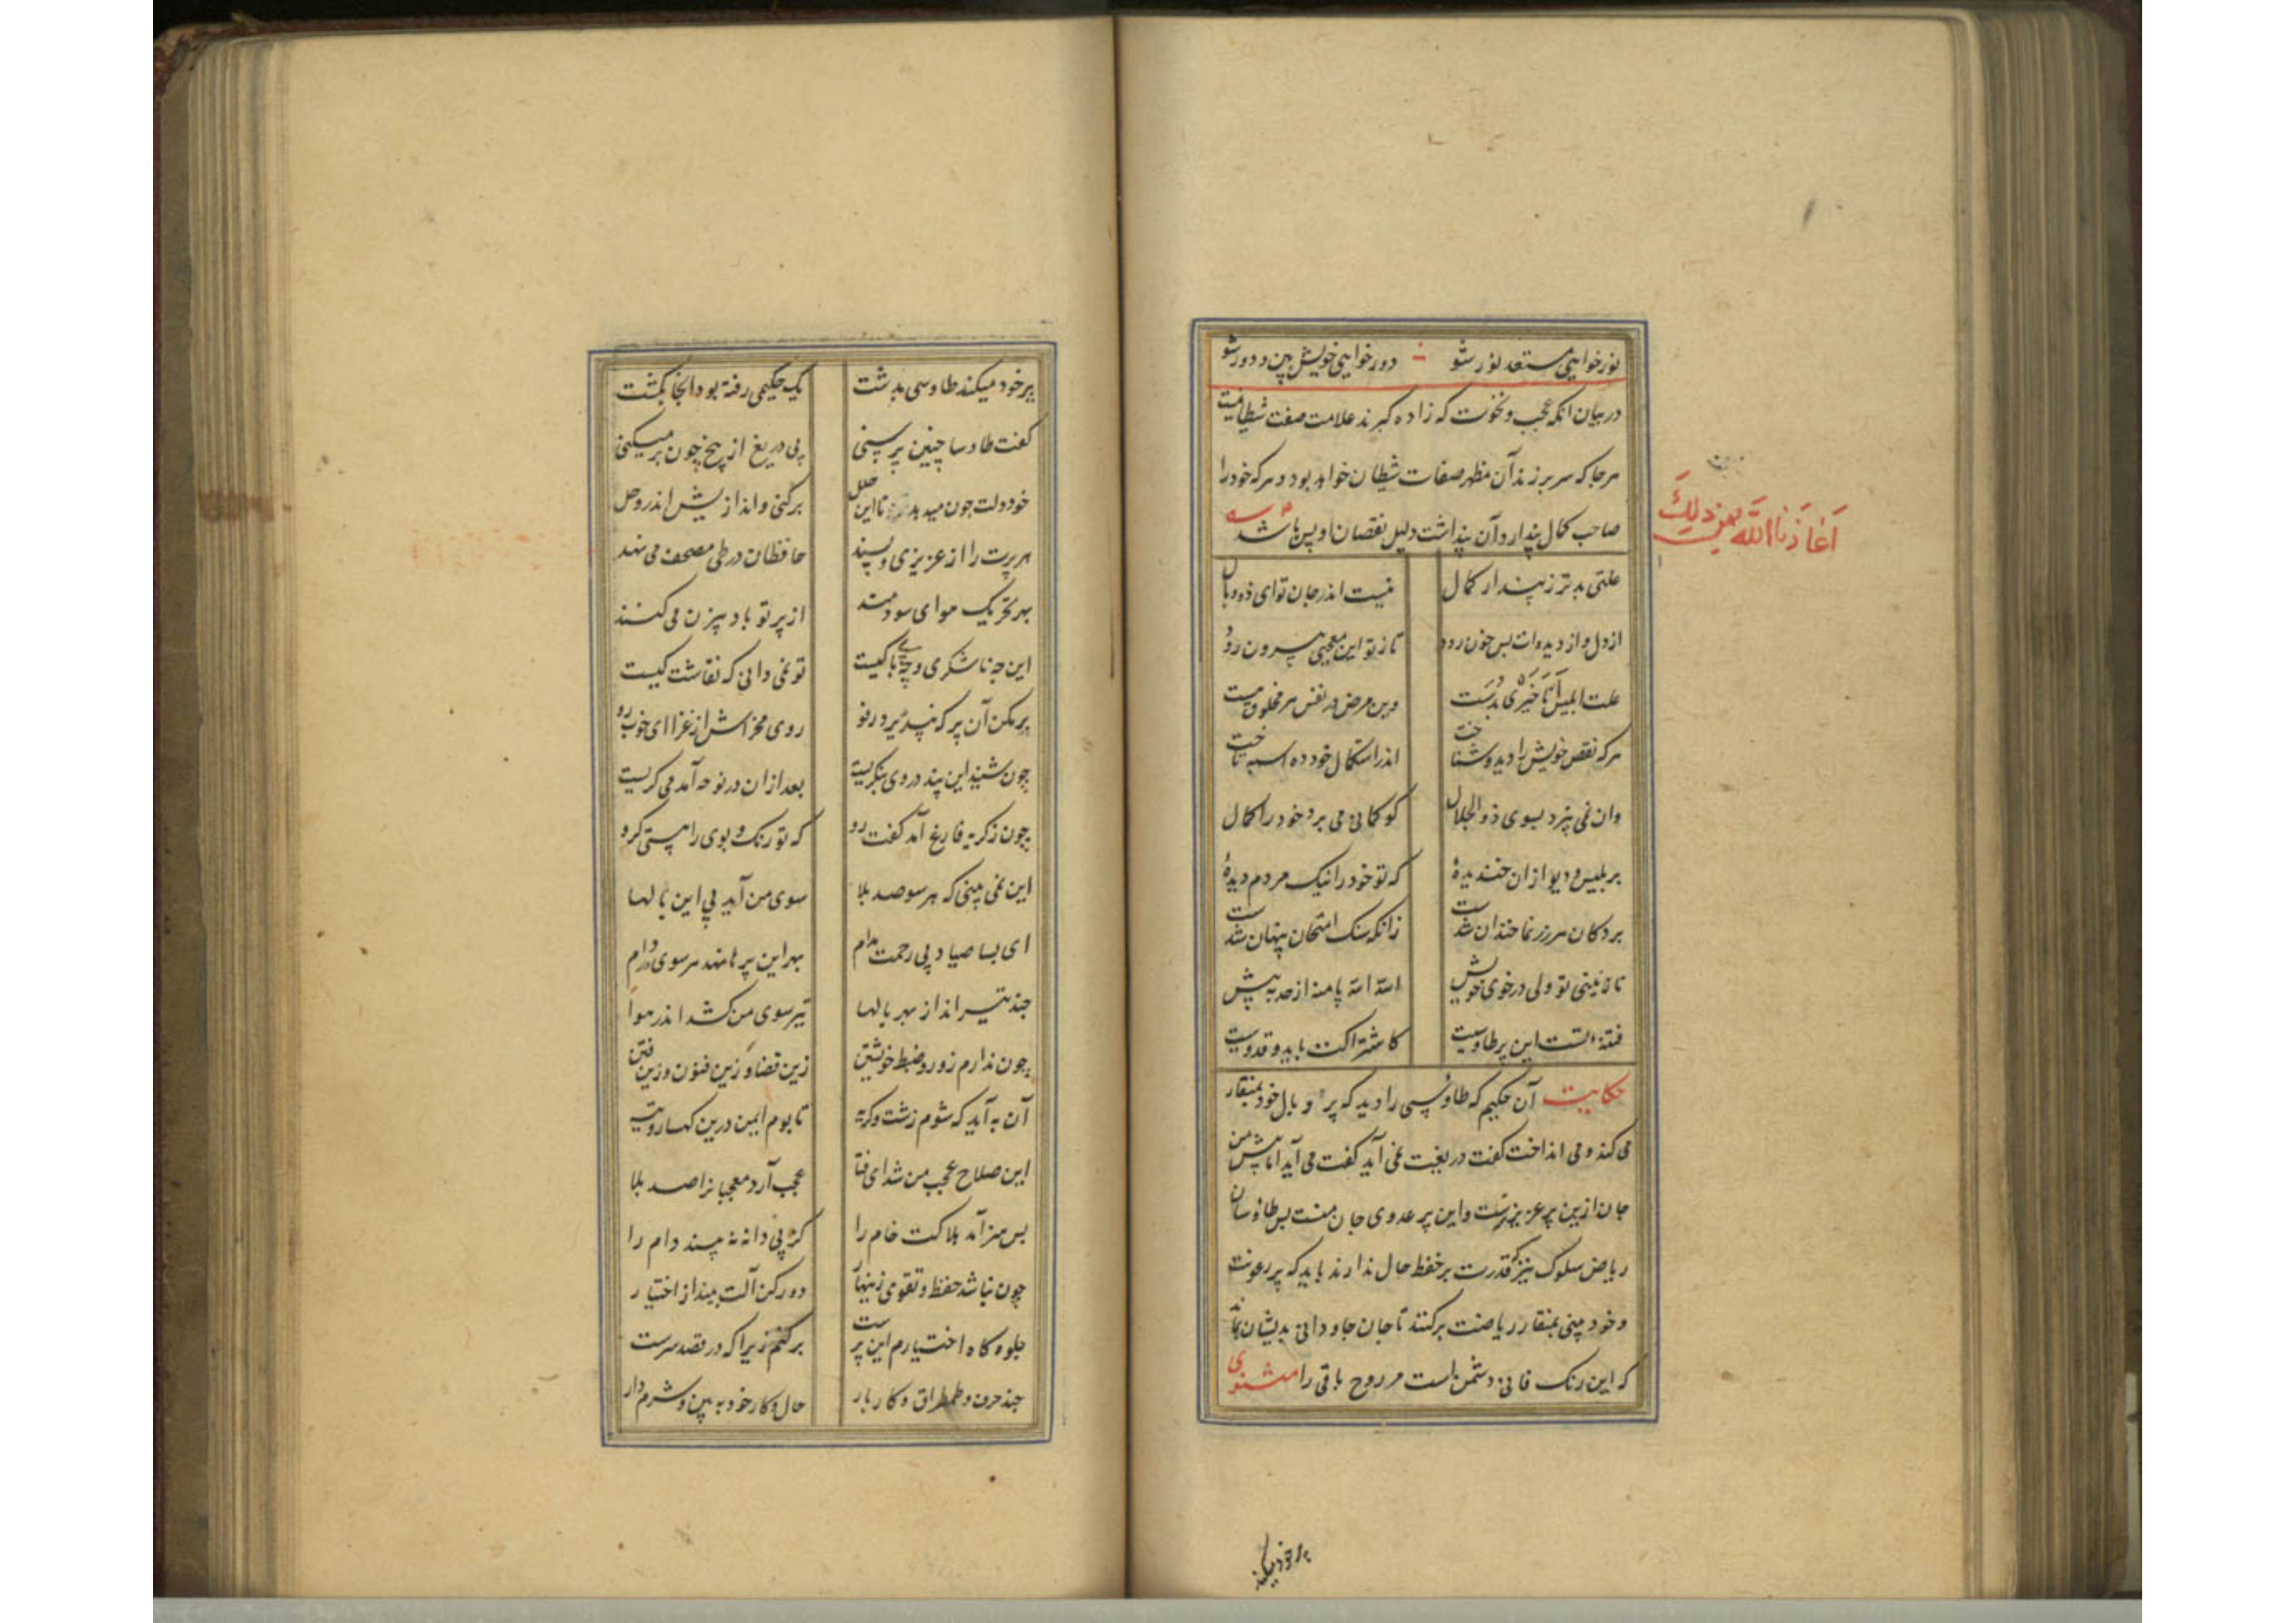 نور خواهی مستعد نور شو دور خواهی خویش بین و دور شو
در بیان آنکه عجب و نخوت که زاده کبرند علامت صفت شیطانیت
هر جا که سر بر زند آن مظهر صفات شیطان خواهد بود و هر که خود را
صاحب کمال پندارد و آن پنداشت دلیل نقصان او بس باشد
اعاذنا الله من ذلک
علتی بدتر ز پندار کمال نیست اندر جان تو ای ذو دلال
از دل و از دیده ات بس خون رود تا ز تو این معجبی بیرون رود
علت ابلیس أنا خیری بدست وین مرض در نفس هر مخلوق هست
هر که نقص خویش را دید و شناخت اندر استکمال خود ده اسبه تاخت
وان نمی پرد بسوی ذو الجلال کو کمانی می برد خود را کمال
بر بلیس و دیو ازان خندیدهٔ که تو خود را نیک مردم دیدهٔ
بر دکان هر زر نما خندان شدست زانکه سنک امتحان پنهان شدست
تا نبینی تو ولی در خوی خویش الله الله پا منه از حد به پیش
فتنه تست این پر طاوسیت کاشتراکت باید و قدوسیت
حکایت آن حکیم که طاوسی را دید که پر و بال خود بمنقار
می کند و می انداخت کفت دریغت نمی آید کفت می آید اما پیش من
جان ازین پر عزیزترست و این پر عدوی جان منست پس طاوسان
ریاض سلوک نیز که قدرت بر حفظ حال ندارند باید که پر رعونت
و خود بینی بمنقار ریاضت برکنند تا جان جاودانی بدیشان بماند
که این رنک فانی دشمن است مر روح باقی را مثنوی
پر خود میکند
پر خود میکند طاوسی بدشت یک حکیمی رفته بود آنجا بکشت
کفت طاوسا چنین پر سنی بی دریغ از بیخ چون بر میکنی
خود دلت چون میدهد تا این حلل برکنی و اندازیش اندر وحل
هر پرت را از عزیزی و پسند حافظان در طی مصحف می نهند
بهر تحریک هوای سودمند از پر تو باد بیزن می کنند
این چه ناشکری و چه بی باکیست تو نمی دانی که نقاشت کیست
بر مکن آن پر که نپذیرد رفو روی مخراش از عزا ای خوب رو
چون شنید این پند در وی بنکریست بعد ازان در نوحه آمد می کریست
چون ز کریه فارغ آمد کفت رو که تو رنک و بوی را هستی کرو
این نمی بینی که هر سو صد بلا سوی من آید پی این بالها
ای بسا صیاد بی رحمت مدام بهر این پرها نهد هر سوی دام
چند تیر انداز بهر بالها تیر سوی من کشد اندر هوا
چون ندارم زور و ضبط خویشتن زین قضا و زین فنون و زین فتن
آن به آید که شوم زشت و کریه تا بوم ایمن درین کهسار و تیه
این صلاح عجب من شد ای فتا عجب آرد معجبانرا صد بلا
بس هنر آمد هلاکت خام را کز پی دانه نه بیند دام را
چون نباشد حفظ و تقوی زینهار دور کن آلت بینداز اختیار
جلوه کاه اختیارم این پرست بر کنم زیرا که در قصد سرست
چند حرف و طمطراق و کار بار حال و کار خود به بین و شرم دار